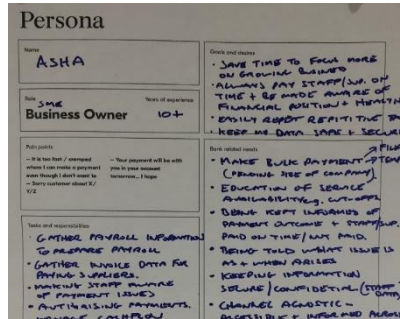 Persona
Name
ASHA
Role
SME
Business Owner
Years of experience
10+
Pain points
– It is too fast /
where I can make a payment
even though I don't want to
– Sorry customer about X/
Y/Z
– Your payment will be with
you in your account
tomorrow.. I hope
Tasks and responsibilities
• GATHER PAYROLL INFORMATION
TO PREPARE PAYROLL
• GATHER INVOICE DATA FOR
PAYING SUPPLIERS.
• MAKING STAFF AWARE
OF PAYMENT ISSUES
• AUTHORISING PAYMENTS.
CASHFLOW
Goals and desires
• SAVE TIME TO FOCUS MORE
ON GROWING
• ALWAYS PAY STAFF/SUP. ON
TIME + BE MADE AWARE OF
FINANCIAL POSITION + HEALTH
• EASILY REPEAT
• KEEP DATA SAFE + SECURE
Bank related needs
• MAKE BULK PAYMENT
(DEPENDING SIZE OF COMPANY)
• EDUCATION OF SERVICE
AVAILABILITY e.g. CUT-OFFS
• BEING KEPT INFORMED OF
PAYMENT OUTCOME + STAFF/SUP.
PAID ON TIME/NOT PAID
• BEING TOLD WHAT ISSUE IS
AS + WHEN ARISES
• KEEPING INFORMATION
SECURE/CONFIDENTIAL (STAFF
DATA
• CHANNEL AGNOSTIC –
ACCESSIBLE + INFORMED ACROSS